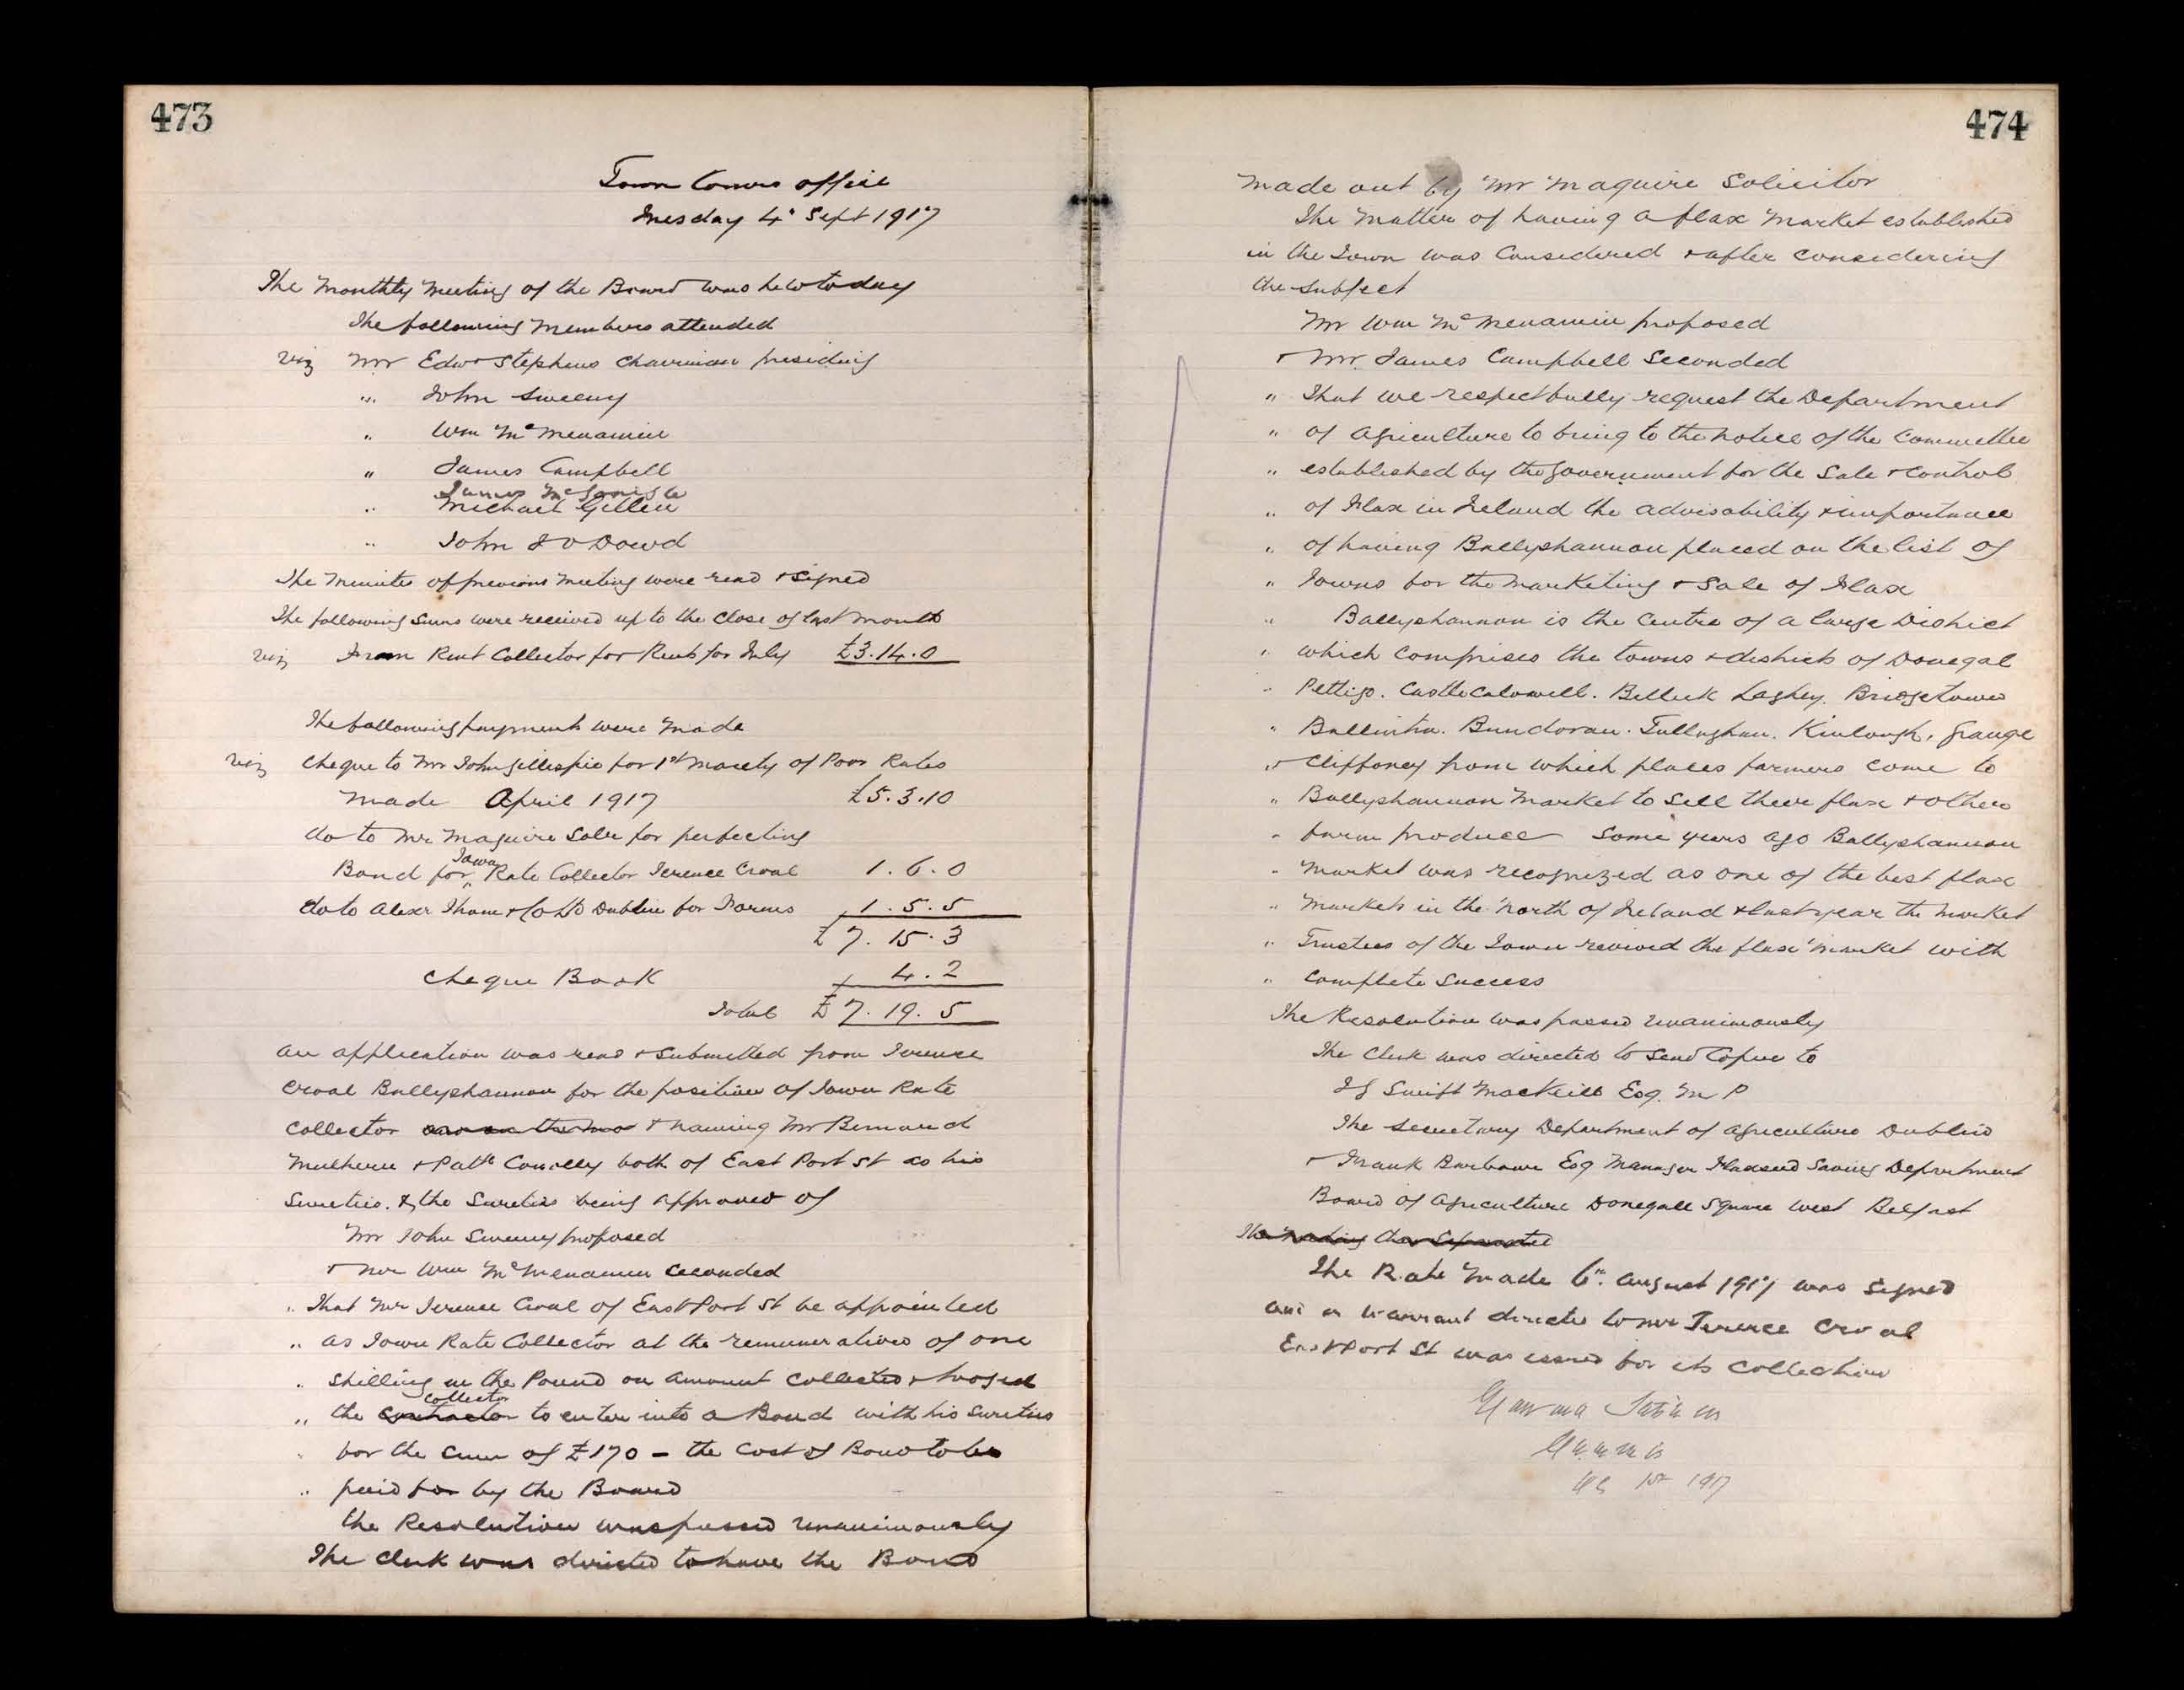 473
Town Comrs office
Tuesday 4" Sept 1917
The Monthly Meeting of the Board was held today
The following Members attended
viz Mr Edwd Stephens Chairman presiding
" John Sweeny
" Wm McMenamin
" James Campbell
James McGonigle
" Michael Gillen
" John J O Dowd
The Minutes of previous Meeting were read & signed
The following sums were received up to the close of last month
viz From Rent Collector for Rents for July £3.14.0
The following payments were made
viz Cheque to Mr John Gillespie for 1st Moiety of Poor Rates
Made April 1917 £5.3.10
do to Mr Maguire Solr for perfecting
Town
Bond for " Rate Collector Terence Croal 1.6.0
do to Alexr Thom & Co Ltd Dublin for Forms 1.5.5
£7.15.3
Cheque Book 4.2
Total £7.19.5
An application was read & submitted from Terence
Croal Ballyshannon for the position of Town Rate
Collector & naming Mr Bernard
Mulhern & Patk Conolly both of East Port St as his
Sureties. & the Sureties being approved of
Mr John Sweeny proposed
& Mr Wm McMenamin seconded
" That Mr Terence Croal of East Port St be appointed
" as Town Rate Collector at the remuneration of one
" shilling in the Pound on amount collected & lodged
collector
" the contractor to enter into a Bond with his sureties
" for the sum of £170 – the cost of Bond to be
" paid for by the Board
The Resolution was passed unanimously
The Clerk was directed to have the Bond
474
Made out by Mr Maguire Solicitor
The Matter of having a flax Market established
in the Town was Considered & after considering
the subject
Mr Wm McMenamin proposed
& Mr. James Campbell Seconded
" That we respectfully request the Department
" of Agriculture to bring to the notice of the Committee
" established by the Government for the Sale & Control
" of Flax in Ireland the advisability & importance
" of having Ballyshannon placed on the list of
" Towns for the Marketing & Sale of Flax
" Ballyshannon is the Centre of a large District
" which comprises the towns & districts of Donegal
" Pettigo. Castlecaldwell. Belleek Laghey. Bridgetown
" Ballintra. Bundoran. Tullaghan. Kinlough, Grange
" & Cliffoney from which places farmers come to
" Ballyshannon Market to sell their flax & other
" farm produce Some years ago Ballyshannon
" Market was recognized as one of the best flax
" Markets in the North of Ireland & last year the Market
" Trustees of the Town revived the flax Market with
" complete success
The Resolution was passed unanimously
The Clerk was directed to send Copies to
J G Swift MacNeill Esq. M P
The Secretary Department of Agriculture Dublin
& Frank Barbour Esq Manager Flaxseed Saving Department
Board of Agriculture Donegall Square West Belfast
The meeting then separated
The Rate Made 6". August 1917 was signed
and a warrant directed to Mr Terence Croal
East Port St was issued for its Collection
1st 1917